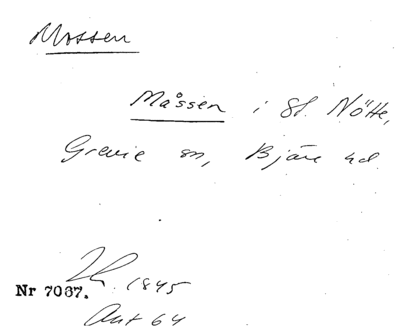 Mossen
Måssen i St. Nötte,
Grevie sn, Bjäre hd.
1845
Nr 7067.
Akt 64